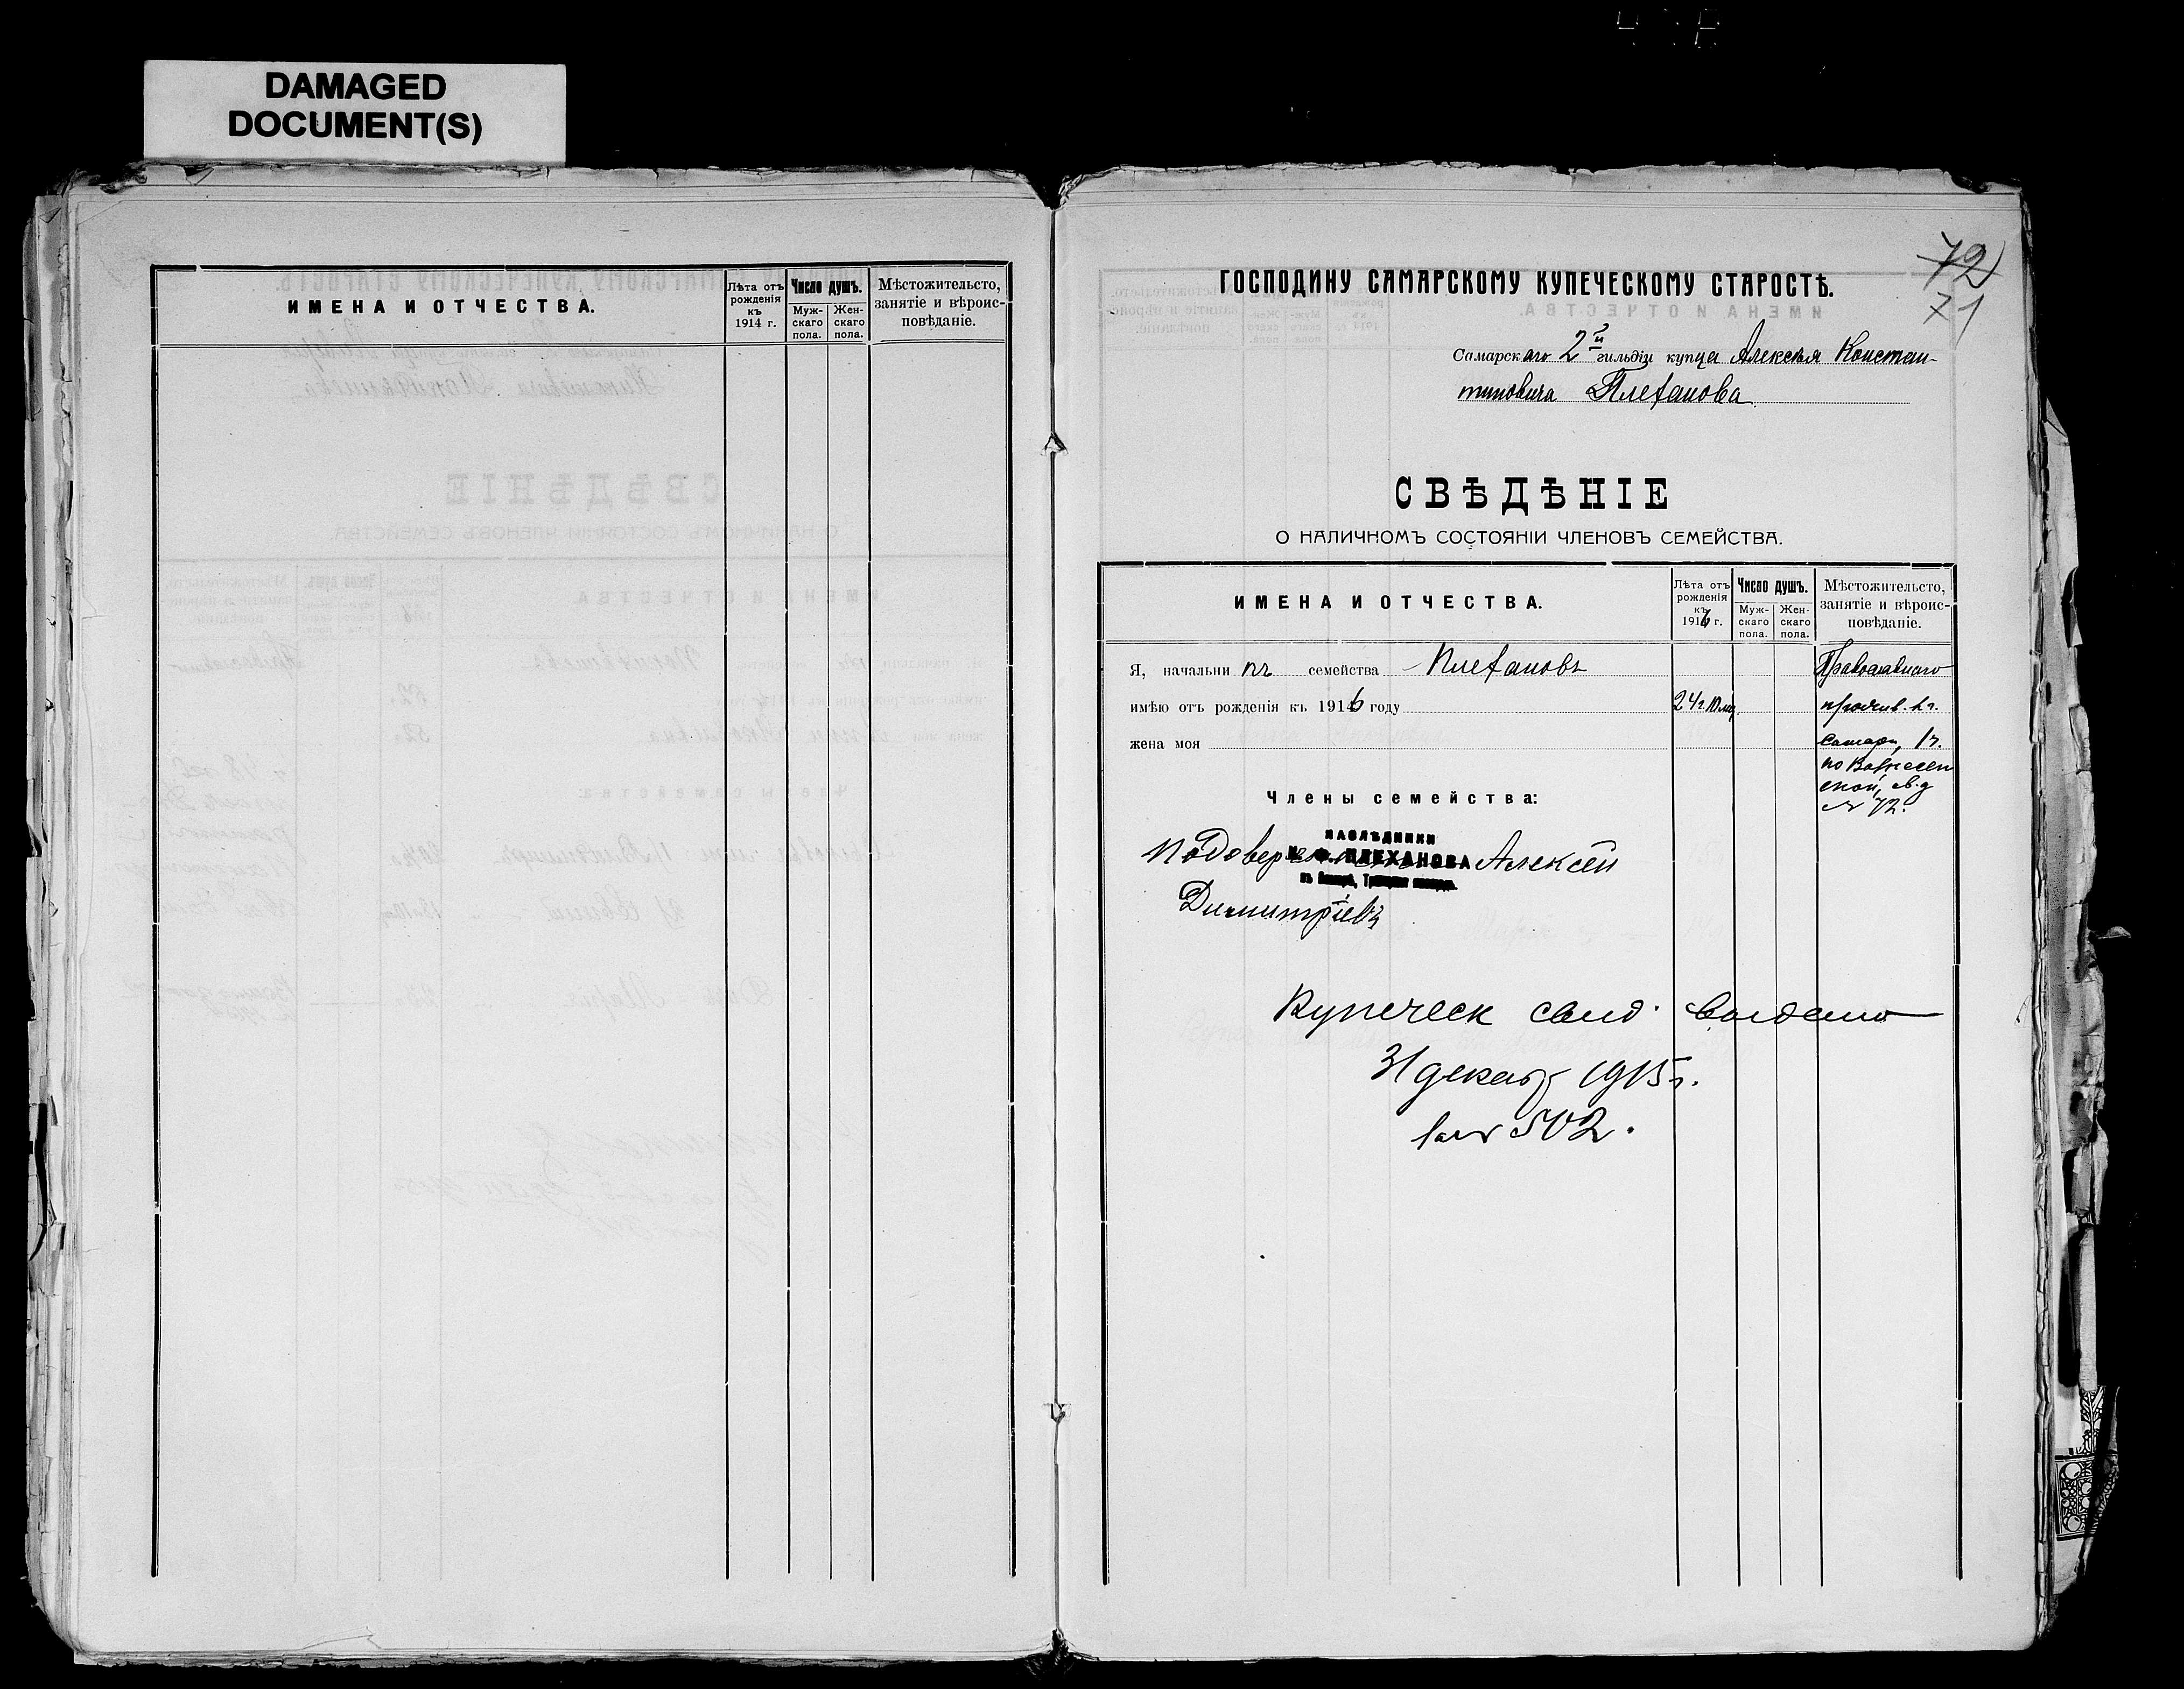 DAMAGED
DOCUMENT(S)
ИМЕНА И ОТЧЕСТВА.
Лѣта отъ
рожденія
къ
1914 г.
Число душъ.
Муж-
скаго
пола.
Жен-
скаго
пола.
Мѣстожительсто,
занятіе и вѣроис-
повѣданіе.
72
71
ГОСПОДИНУ САМАРСКОМУ КУПЕЧЕСКОМУ СТАРОСТѢ.
Самарскаго 2й гильдіи купца Алексѣя Констан-
тиновича Плеханова
СВѢДѢНІЕ
О НАЛИЧНОМЪ СОСТОЯНІИ ЧЛЕНОВЪ СЕМЕЙСТВА.
ИМЕНА И ОТЧЕСТВА.
Лѣта отъ
рожденія
къ
1916 г.
Число душъ.
Муж-
скаго
пола.
Жен-
скаго
пола.
Мѣстожительсто,
занятіе и вѣроис-
повѣданіе.
Я, начальникъ семейства Плехановъ Православнаго
имѣю отъ рожденія къ 1916 году 24 г. 10 м.
жена моя
по Вознесен
ской, с.д
№ 72.
Члены семейства:
НАСЛѢДНИКИ
ПЛЕХАНОВА
Алексѣй
Димитріевъ
Купеческ свид. выдано
31 декаб 1915 г.
за № 502.